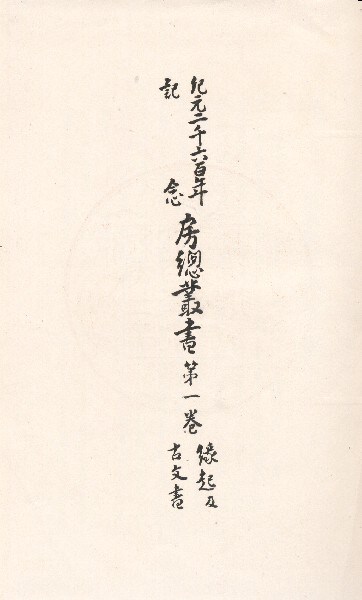 紀元二千六百年
記念
房總叢書第一卷
緣起及
古文書